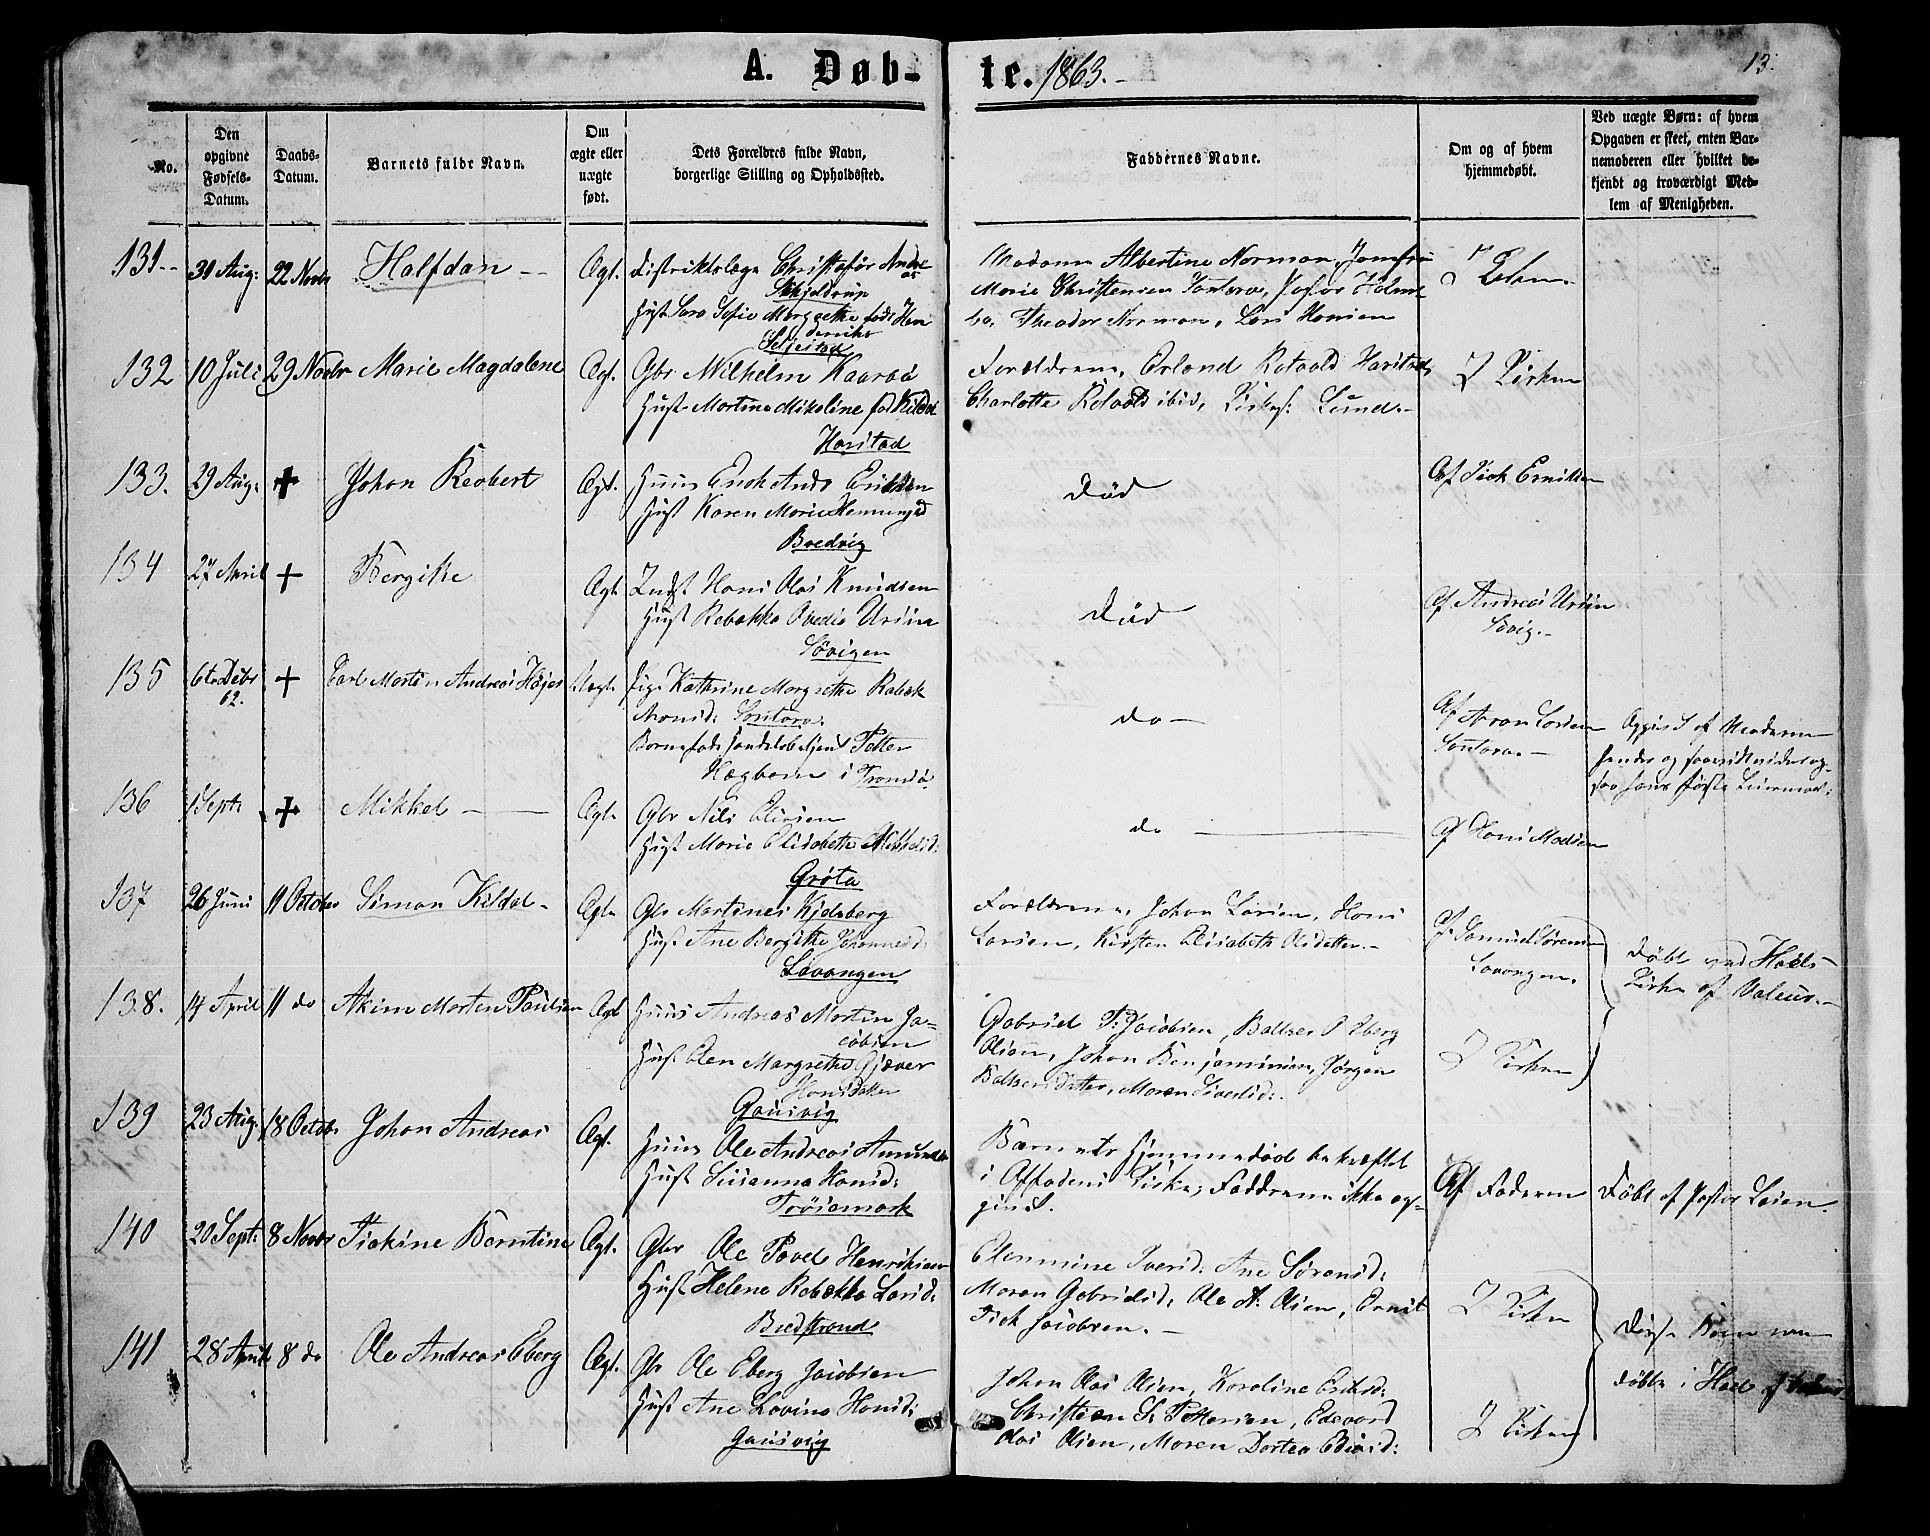 A. Døb-
te. 1863.-
13.
No.
Den
opgivne
Fødsels-
Datum.
Daabs-
Datum.
Barnets fulde Navn.
Om
ægte eller
uægte
født.
Dets Forældres fulde Navn,
borgerlige Stilling og Opholdssted.
Faddernes Navne.
Om og af hvem
hjemmedøbt.
Ved uægte Børn: af hvem
Opgaven er skeet, enten Bar-
nemoderen eller hvilket be-
kjendt og troværdigt Med-
lem af Menigheden.
131.-
31 Aug:
22 Novbr
Halfdan --
Ægt.
Distriktslæge Christofer Andre
as
Skjeldrup
Hust Sara Sofie Margrethe født Hen
Seljestad
Madame Albertine Norman, Jomfru
Marie Christensen
Theodor Norman, Lars Hansen
I Kirken
132
10 Juli
29 Novbr
Marie Magdalene
Ægt.
Gbr Wilhelm Kaarbø
Hust Martine Mikoline fød Kildal
Harstad
Forældrene, Erland Rotvold Harstad,
Charlotte Rotvold ibid, Lund.-
I Kirken
133.
29 Aug:
+
Johan Reobert
Ægt.
Huus Enok Ands Eriksen
Hust Karen Marie Hemmingsd
Bredvig
Død
Af Dick Erniksen
134
27 April
+
Bergitte
Ægt
Indst Hans Olai Knudsen
Hust Rebekka Ovedia Ursin
Sørvigen
Død
Af Andreas Ursin
Sørvig.-
135
6te Debr
62.
+
Carl Morten Andreas Højer
Uægt.
Pige Kathrine Margrethe Rebek
Monsd: Sontora.
Barnefader Handelsbetjent Petter
Hægbom i Tromsø
do -
Af Aron Larsen
Sontora. -
Opgivet af Moderen
136
1 Septr
+
Mikkel -
Ægt.
Gbr Nils Eliesen
Hust Marie Elisabeth Mikkelsd:
Grøta
do
Af Hans Madsen
137
26 Juni
11 October
Simon Kildal -
Ægt.
Gbr Martines Kjelsberg
Hust Ane Bergitte Johannesd:
Lavangen
Forældrene, Johan Larsen, Hans
Larsen, Kirsten Elisabeth Olsdatter.-
Af Samuel Sørensen
Lavangen.
Døbt ved Hols
Kirke af Valeur.-
138.
14 April
11 do
Akim Morten Paulsen
Ægt
Huus Andreas Martin Ja=
cobsen
Hust Elen Margrethe Gjæver
Hansdatter
Gausvig
Gabriel P: Jacobsen, Baltzer P Eberg
Olsen, Johan Benjaminsen, Jørgen
Baltzersdatter, Maren Sivertsd:.
I Kirken
139
23 Aug.
18 Octobr
Johan Andreas
Ægt.
Huus Ole Andreas Amundsen
Hust Susanna Hansd:
Trøsemark
Barnets Hjemmedaab bekræftet
i Astadens Kirke; Faddrene ikke op-
givet.
Af Faderen
Døbt af Pastor Leien.
140
20 Sept:
8 Novbr
Tickine Berntine
Ægt.
Gbr Ole Povel Henriksen
Hust Helene Rebekka Larsd:
Bredstrand
Elenmine Iversd: Ane Sørensd:
Maren Gabrielsd: Ole A: Olsen, Ernst
Dick Jacobsen. -
I Kirken
Disse Børn ere
døbte i Hols af
141
28 April
8 do
Ole Andreas Eberg
Ægt.
Gbr Ole Eberg Jacobsen
Hust Ane Lovina Hansd:
Gausvig
Johan Olai Olsen, Karoline Eriksd:
Christian S. Pettersen, Edevard
Olai Olsen, Maren Dortea Edisd:
I Kirken